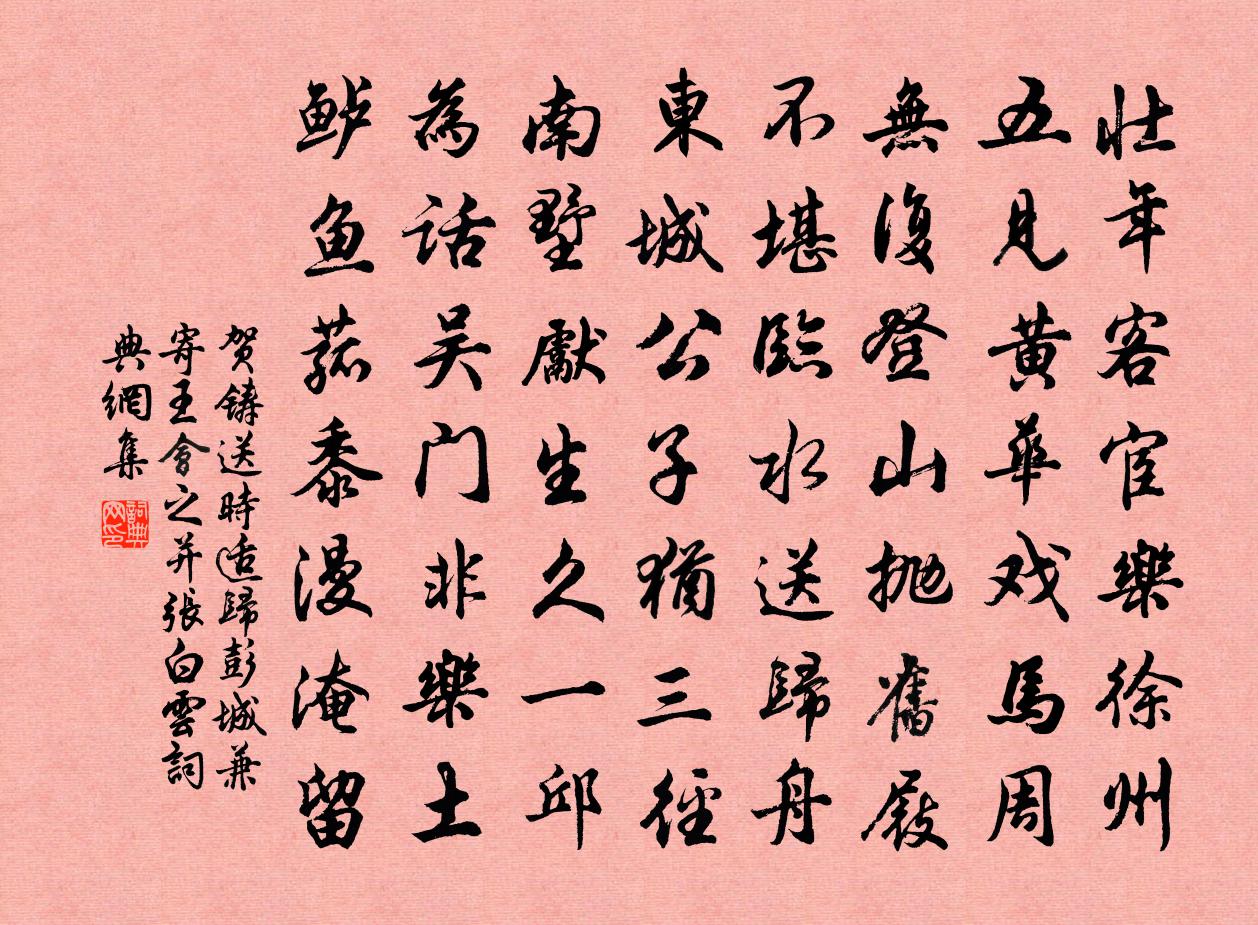 壮年客宦樂徐州
五見黄華戏馬周
無復登山抛舊屐
不堪臨水送歸舟
東城公子猶三徑
南墅獻生久一邱
為話吴门非樂土
鲈鱼菰黍漫淹留
贺鑄送時适歸彭城兼
寄王會之并張白雲詞
典網集
詞典网印